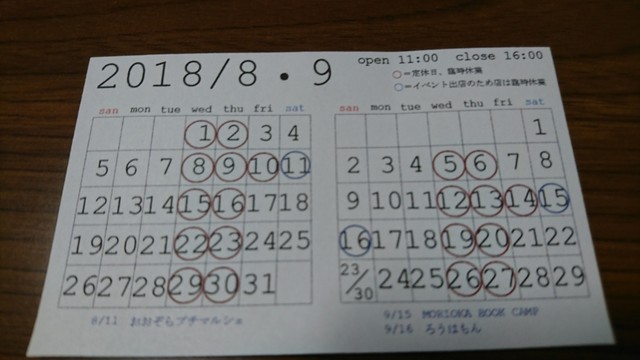 2018/8・9
open 11:00 close 16:00
○=定休日、臨時休業
○=イベント出店のため店は臨時休業
san mon tue wed thu fri sat
1 2 3 4
5 6 7 8 9 10 11
12 13 14 15 16 17 18
19 20 21 22 23 24 25
26 27 28 29 30 31
8/11 おおぞらプチマルシェ
san mon tue wed thu fri sat
1
2 3 4 5 6 7 8
9 10 11 12 13 14 15
16 17 18 19 20 21 22
23/30 24 25 26 27 28 29
9/15 MORIOKA BOOK CAMP
9/16 ろうはもん